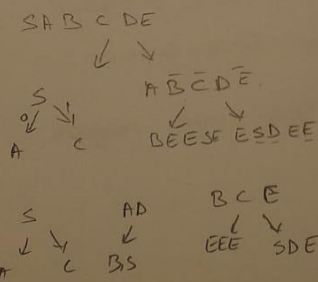 SAB C DE
S A B̅ C̅ D E̅
0 1
A C BEESE ESDEE
S AD B C E
A C B,S EEE SDE